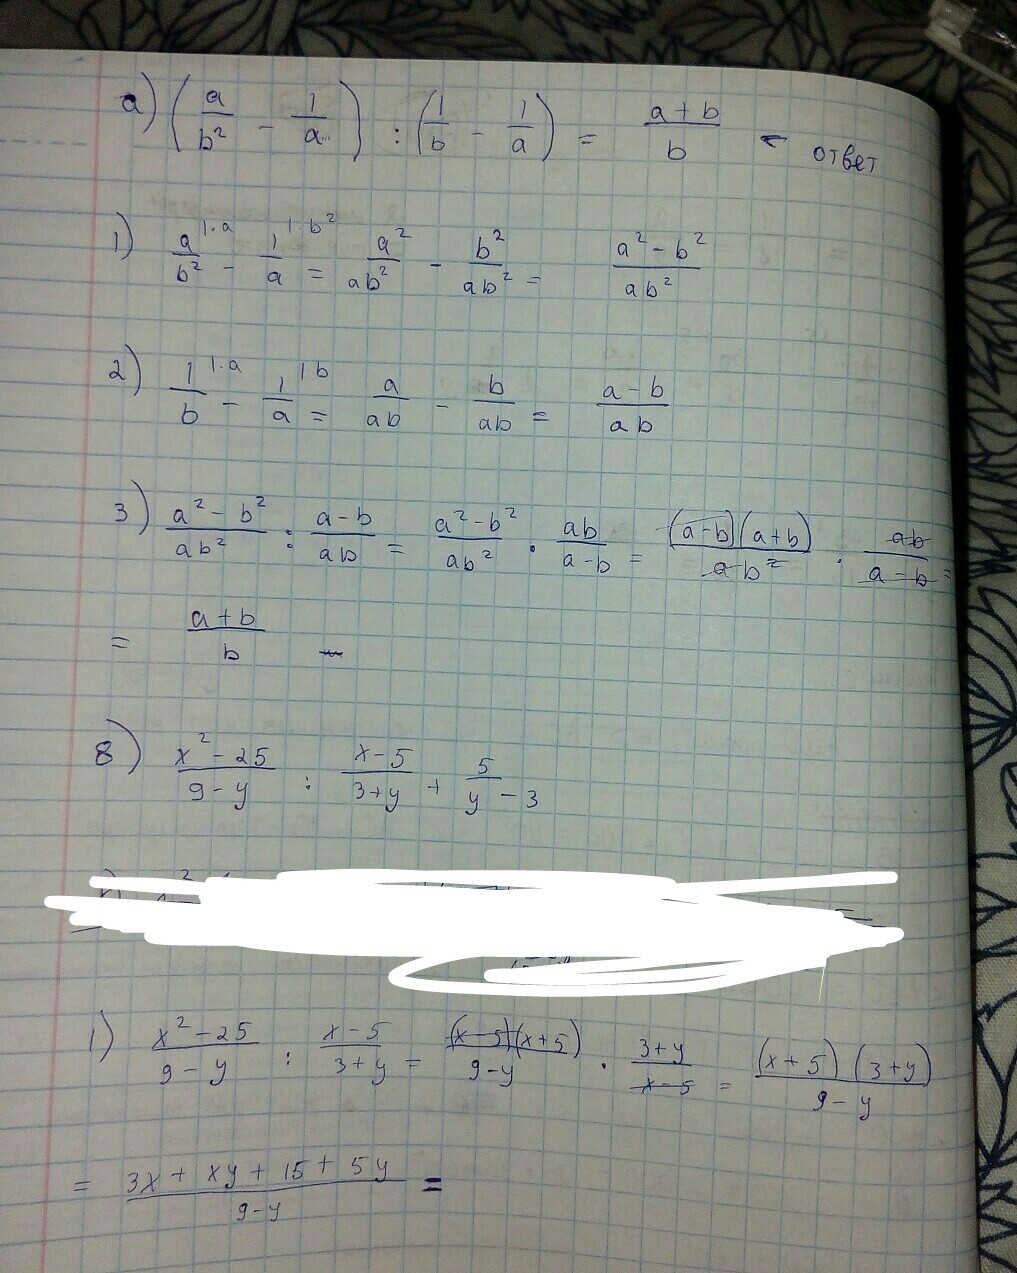 а) (a/b² - 1/a) : (1/b - 1/a) = (a+b)/b ← ответ
1) a/b² |·a - 1/a |·b² = a²/ab² - b²/ab² = (a² - b²)/ab²
2) 1/b |·a - 1/a |b = a/ab - b/ab = (a - b)/ab
3) (a² - b²)/ab² : (a-b)/ab = (a² - b²)/ab² · ab/(a-b) = (a-b)(a+b)/ab² · ab/(a-b) =
= (a+b)/b
8) (x² - 25)/(9 - y) : (x-5)/(3+y) + 5/y - 3
1) (x² - 25)/(9 - y) : (x-5)/(3+y) = (x-5)(x+5)/(9-y) · (3+y)/(x-5) = (x+5)(3+y)/(9-y)
= (3x + xy + 15 + 5y)/(9-y) =